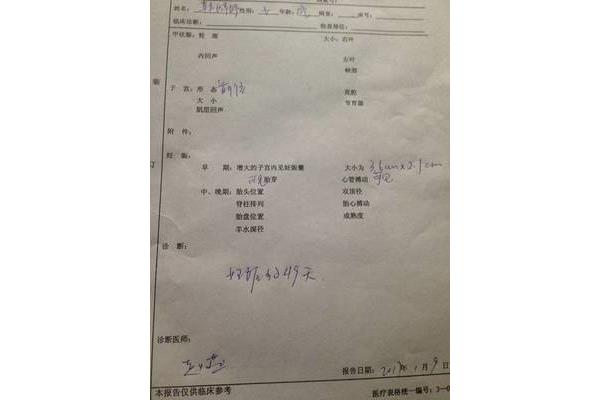 姓名: 性别: 女 年龄: 病室: 床号:
临床诊断: 检查部位:
甲状腺: 轮廓 大小: 右叶
内回声 左叶
峡部
子宫: 形态 前位 宫腔
大小 节育器
肌层回声
附件:
妊娠:
早期: 增大的子宫内见妊娠囊 大小为 3.6cm×2.9cm
可见胎芽 心管搏动 可见
中、晚期: 胎头位置 双顶径
脊柱排列 胎心搏动
胎盘位置 成熟度
羊水深径
诊断:
妊娠约49天.
诊断医师:
报告日期: 2013年1月9日
本报告仅供临床参考 医疗表格统一编号: 3-0